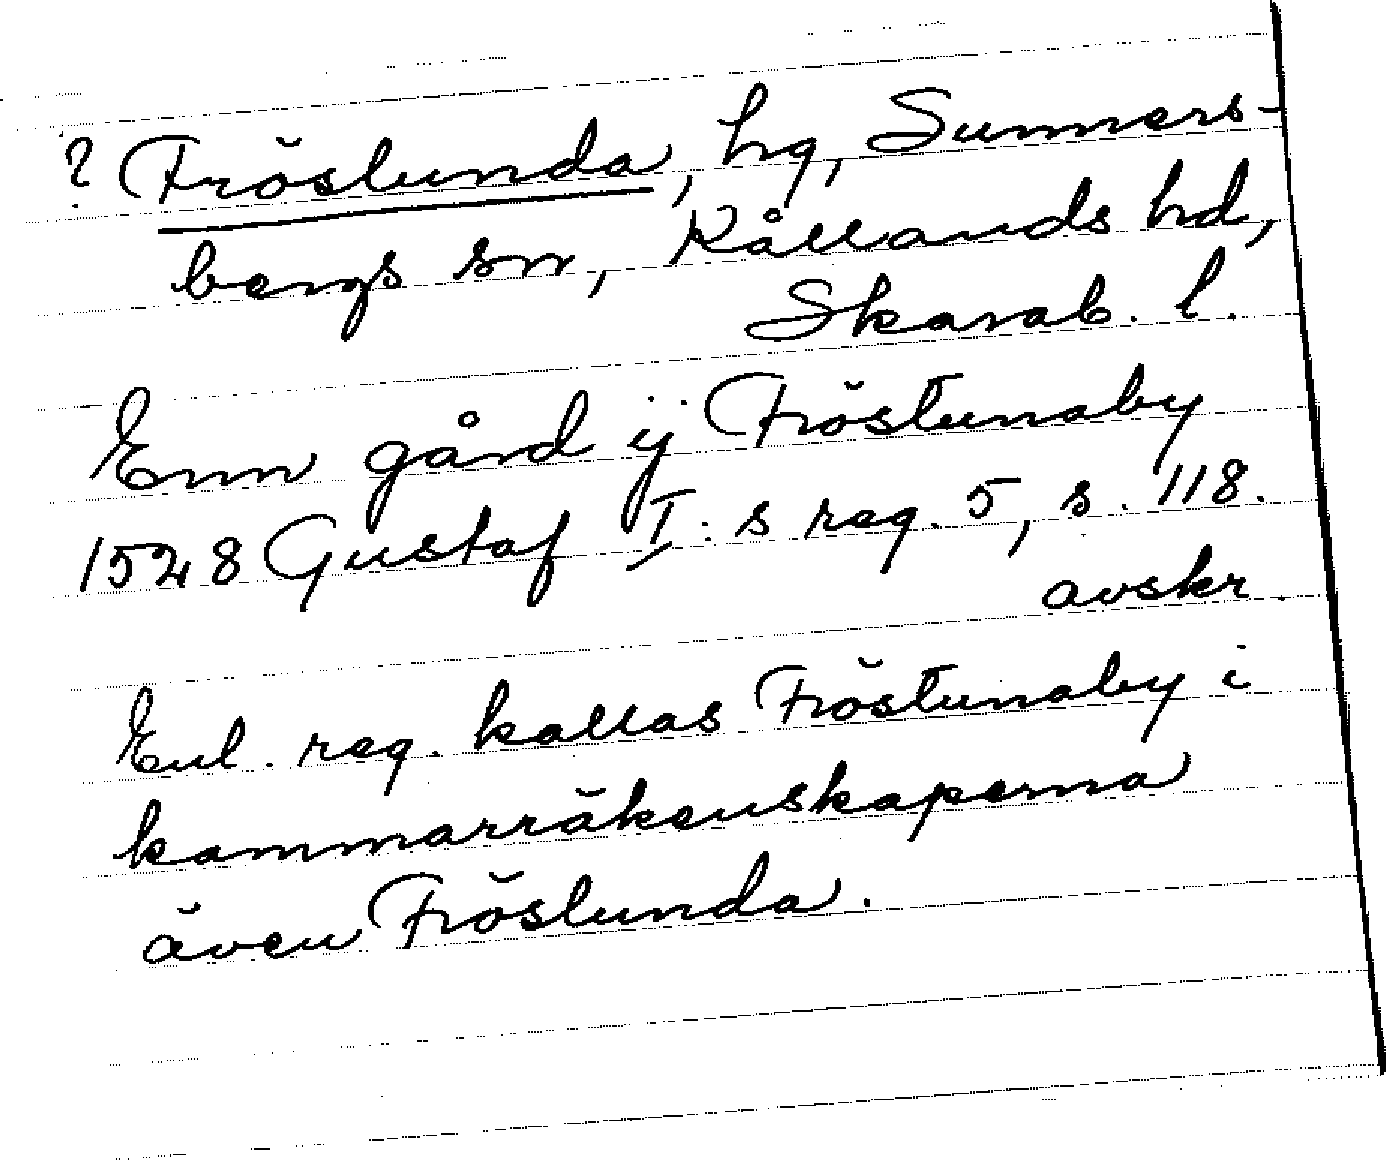 ? Fröslunda, hg, Sunners-
bergs sn, Kållands hd,
Skarab. l.
Enn gård ij Fröstunaby
1528 Gustaf I:s reg. 5, s. 118.
avskr.
Enl. reg. kallas Fröstunaby i
kammarräkenskaperna
även Fröslunda.